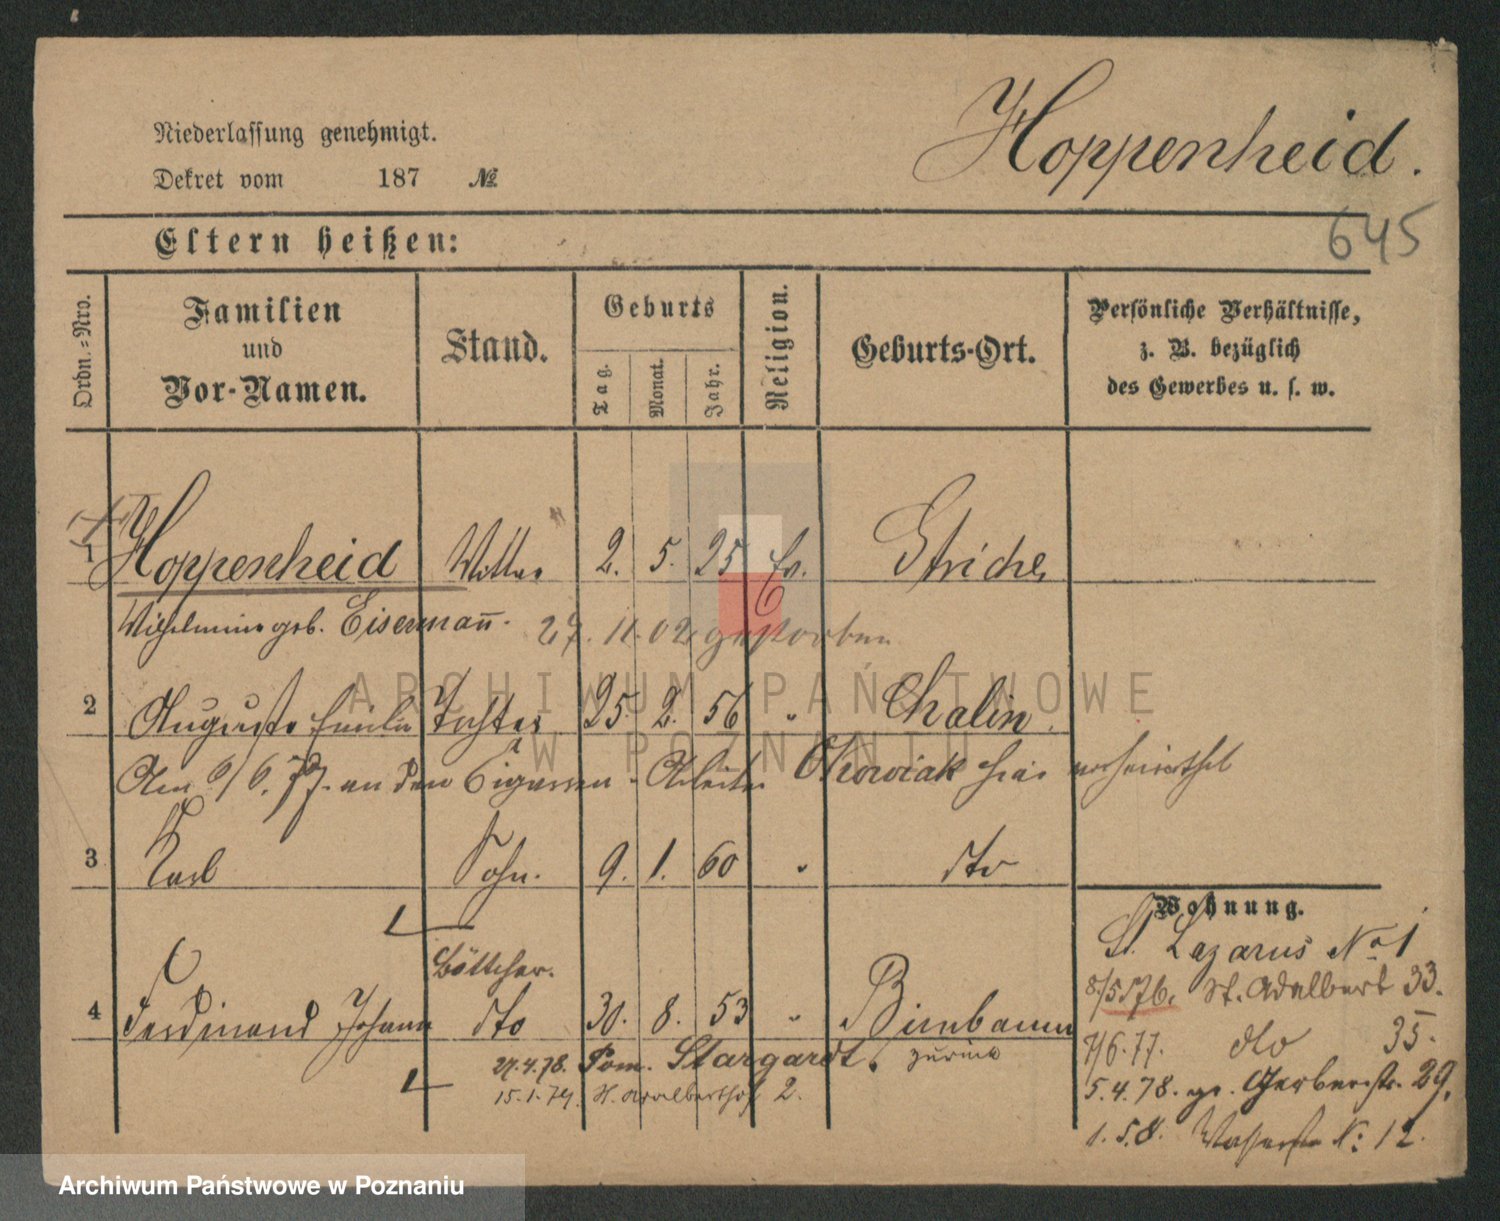 Hoppenheid.
Niederlassung genehmigt.
Dekret vom 187 №
645
Eltern heißen:
Ordn.=Nro.
Familien und Vor-Namen.
Stand.
Geburts
Tag.
Monat.
Jahr.
Religion.
Geburts-Ort.
Persönliche Verhältnisse,
z. B. bezüglich
des Gewerbes u. s. w.
1 Hoppenheid Wittwe 2. 5. 25 Ev. Striche
Wilhelmine geb. Eisermañ. 27. 11. 02 gestorben
2 Auguste Emilie Tochter 25. 2. 56 " Chalin.
Am 9/6. 77. an den Cigarren-Arbeiter hier verheirathet
3 Karl Sohn. 9. 1. 60 " dto
Böttcher.
4 Ferdinand Johann dto 30. 8. 53 " Birnbaum
27.4.78. Pom. Stargardt. zurück
15.1.79. St. Adalberthof 2.
Wohnung.
St. Lazarus No 1
8/5 76. St. Adalbert 33.
7/6.77. dto 35.
5.4.78. gr. Gerberstr. 29.
1.5.8. Wasserstr N: 12.
ARCHIWUM PAŃSTWOWE
W POZNANIU
Archiwum Państwowe w Poznaniu